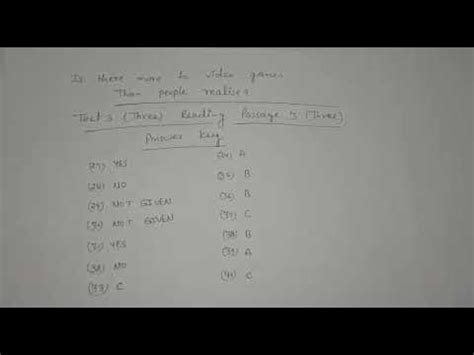 Is there more to video games
Than people realises
Test 3 (Three) Reading Passage 3 (Three)
Answer Key
(27) YES
(28) NO
(29) NOT GIVEN
(30) NOT GIVEN
(31) YES
(32) NO
(33) C
(34) A
(35) B
(36) B
(37) C
(38) B
(39) A
(40) C